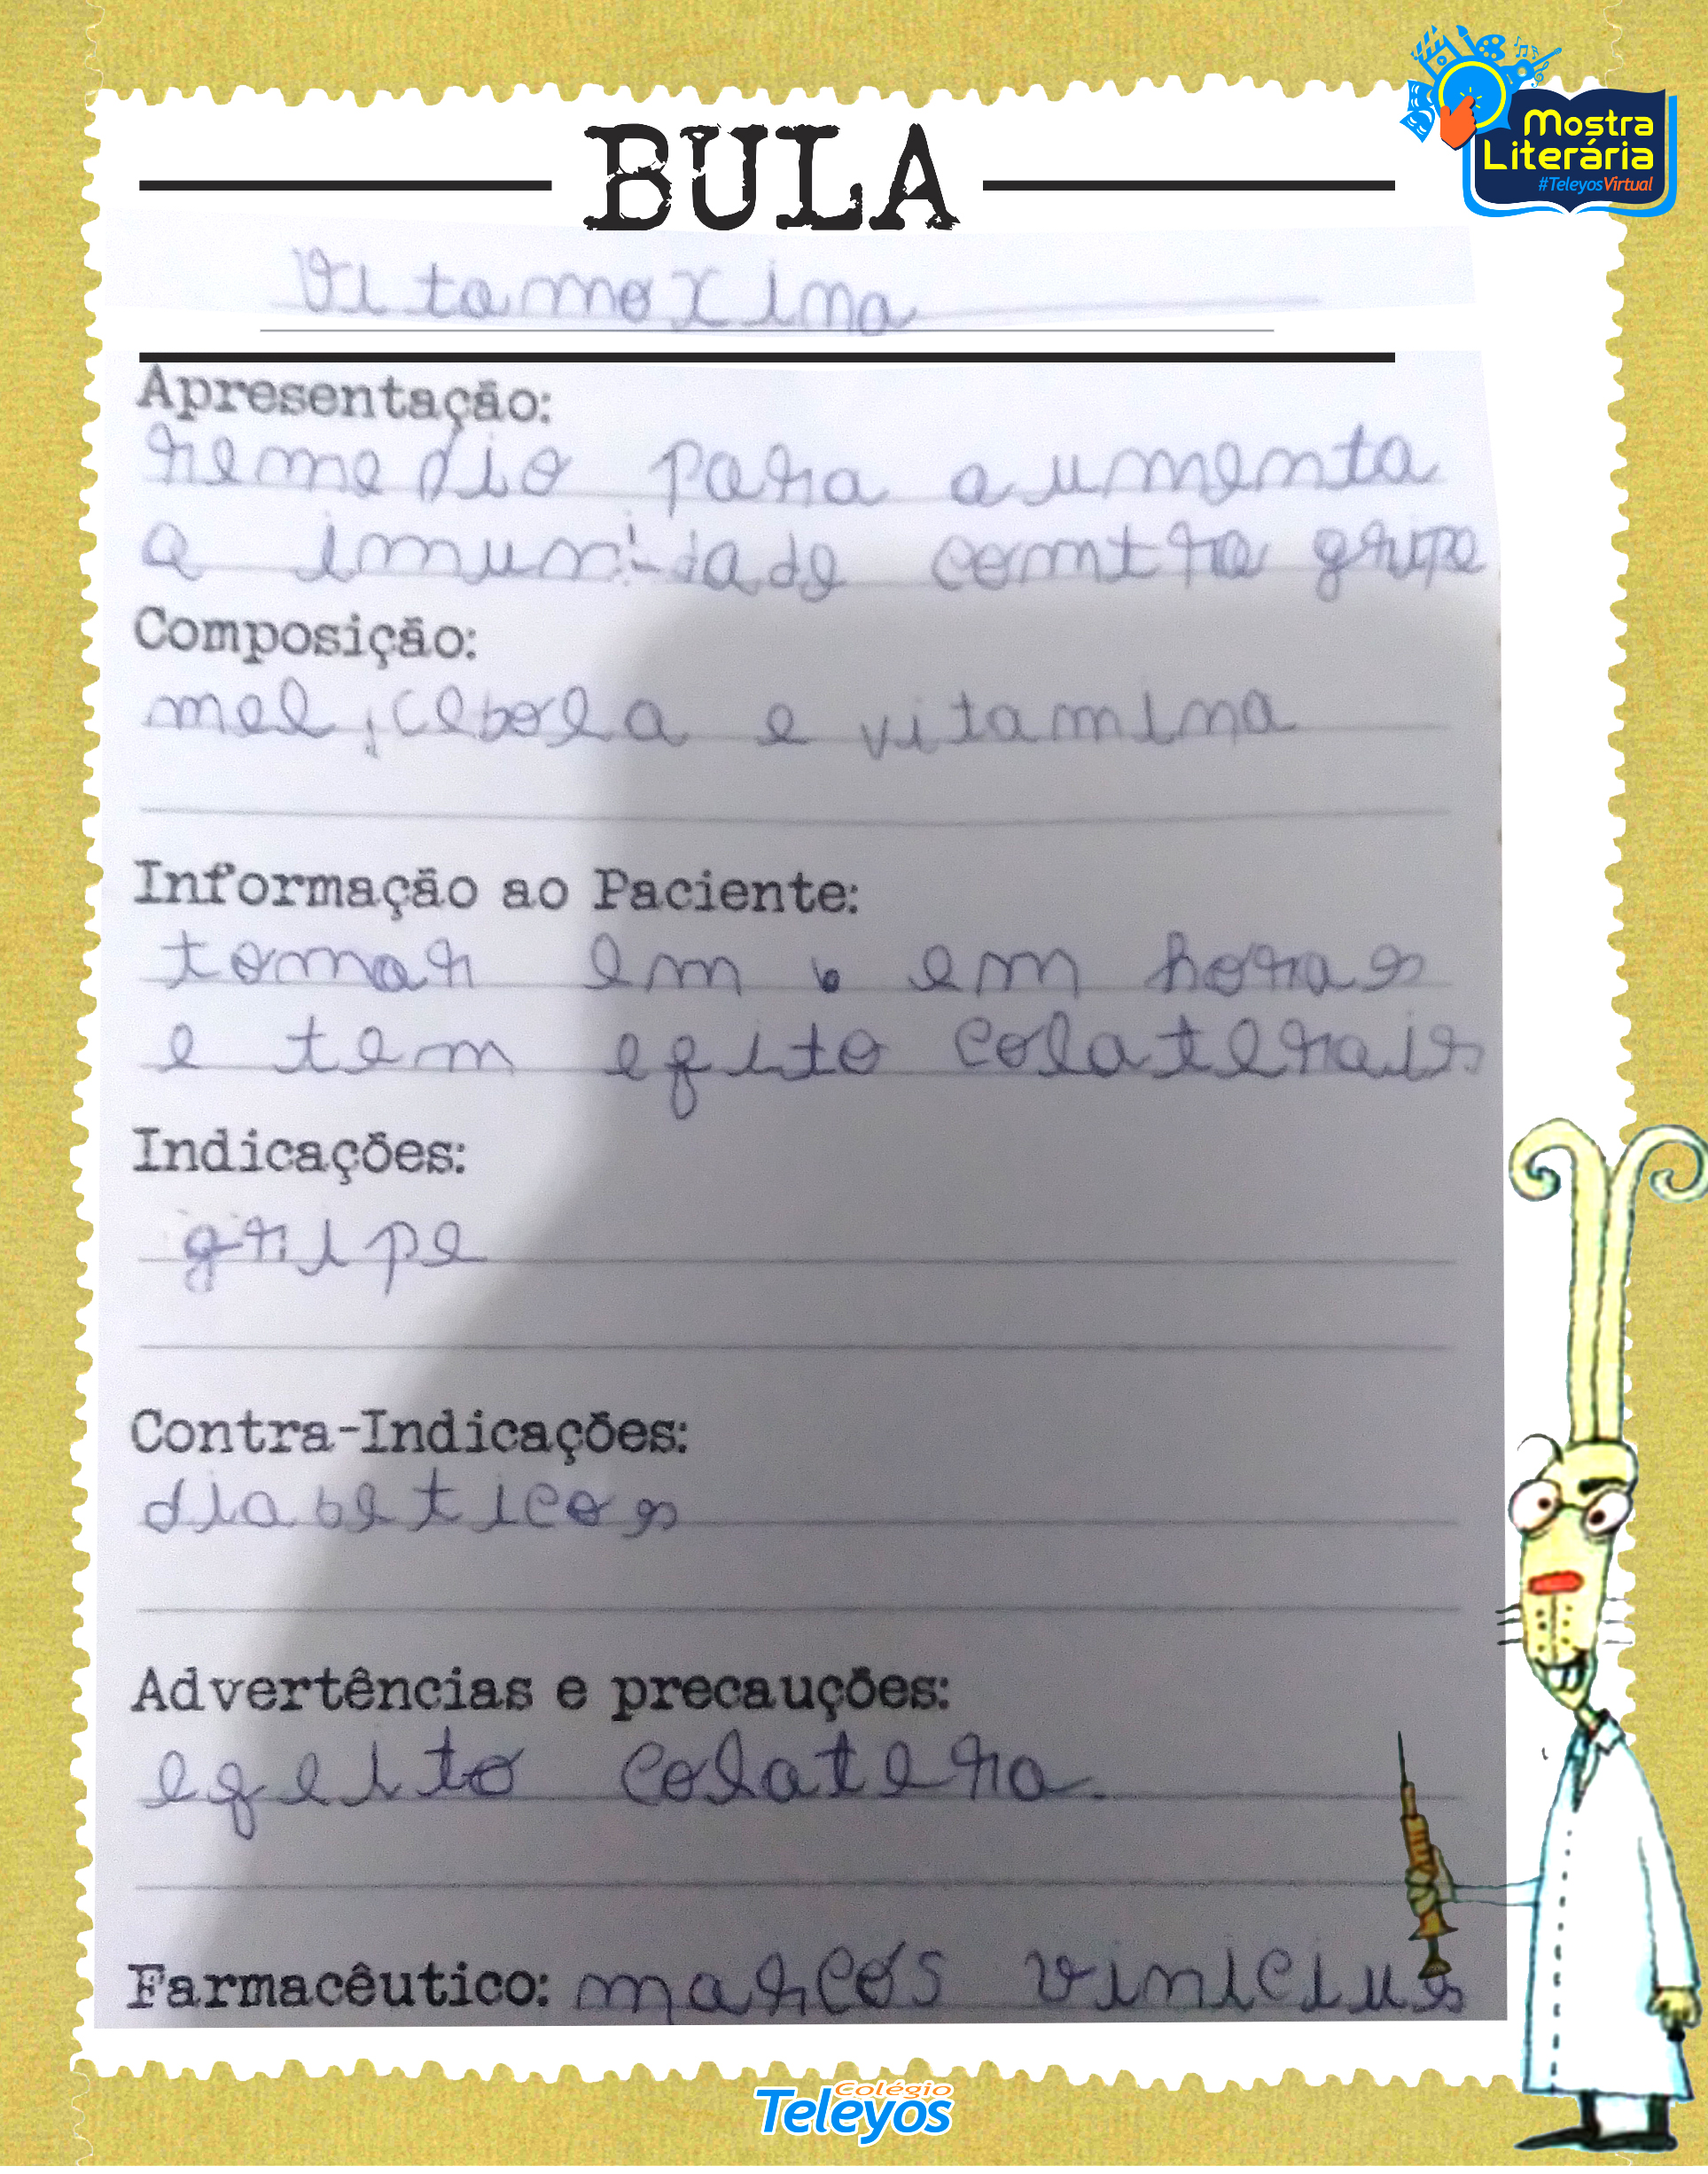 BULA
Mostra
Literária
#TeleyosVirtual
Vitamoxima
Apresentação:
remedio para aumenta
a imunidade comtra gripe
Composição:
mel, cebola e vitamina
Informação ao Paciente:
tomar em 6 em horas
e tem efito colaterais
Indicações:
gripe
Contra-Indicações:
diabeticos
Advertências e precauções:
efeito colatera.
Farmacêutico: marcos vinicius
Colégio
Teleyos